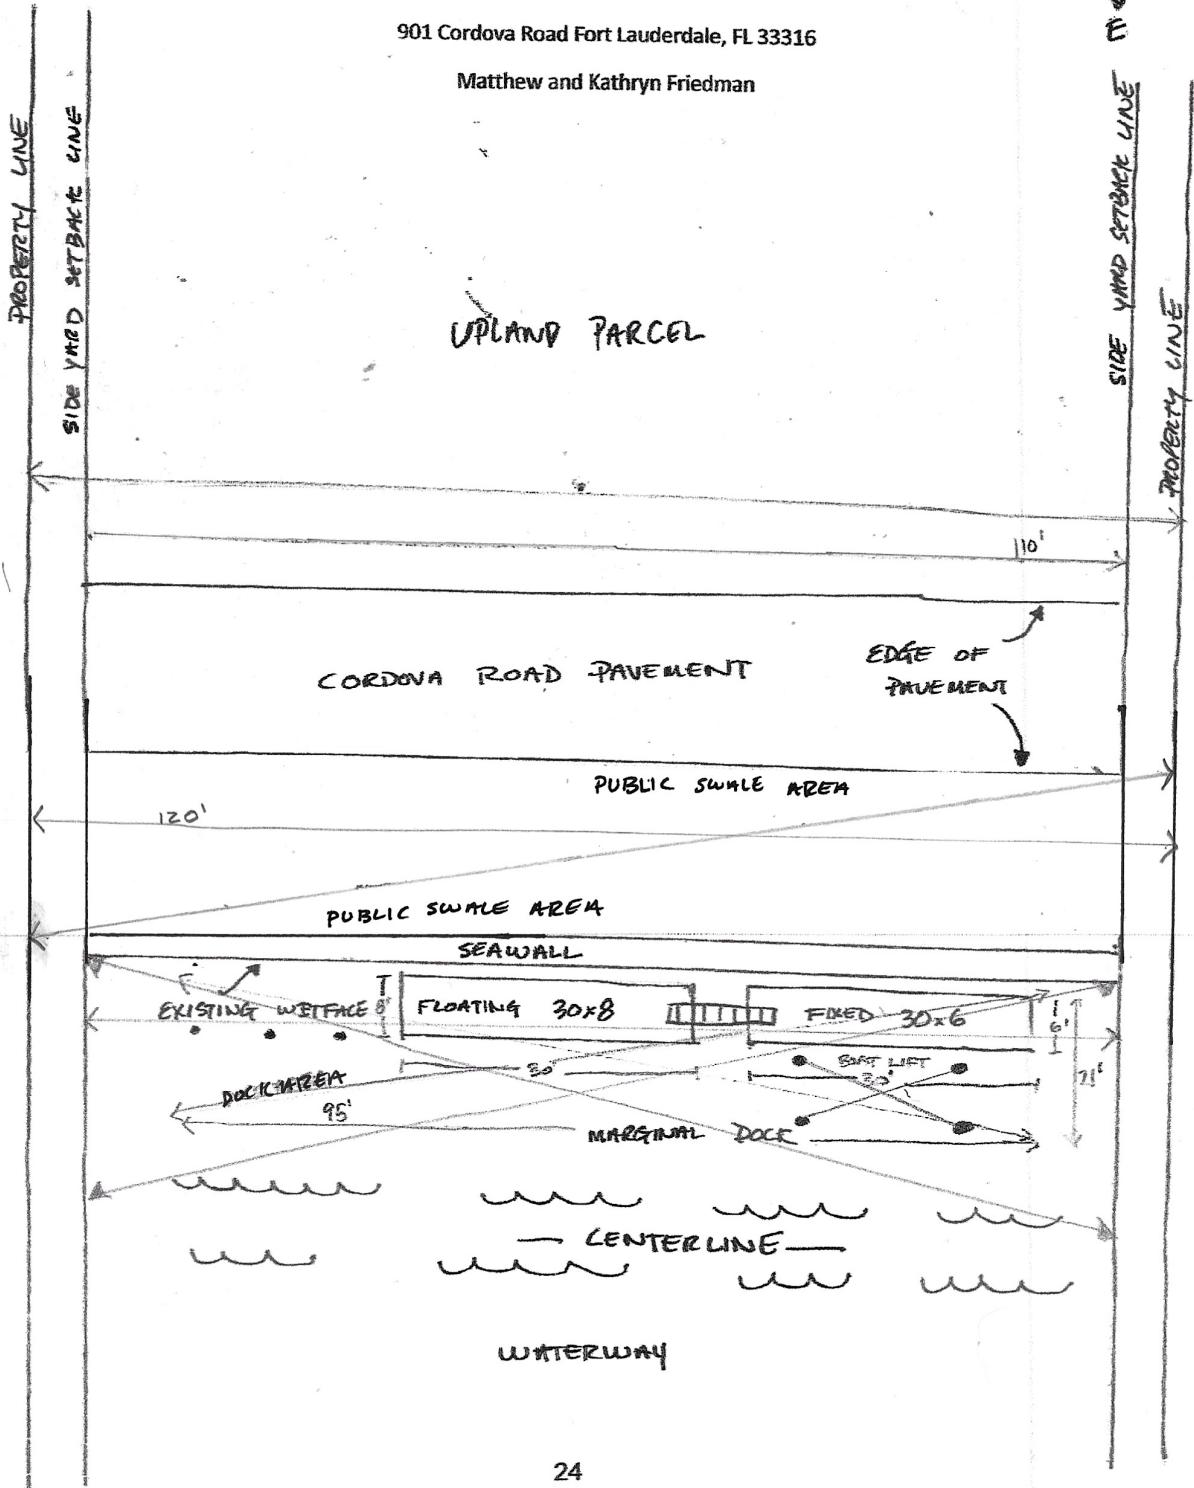 901 Cordova Road Fort Lauderdale, FL 33316
Matthew and Kathryn Friedman
PROPERTY LINE
SIDE YARD SETBACK LINE
SIDE YARD SETBACK LINE
PROPERTY LINE
UPLAND PARCEL
110'
EDGE OF
PAVEMENT
CORDOVA ROAD PAVEMENT
PUBLIC SWALE AREA
120'
PUBLIC SWALE AREA
SEAWALL
EXISTING WETFACE
8'
FLOATING 30x8
FIXED 30x6
6'
BOAT LIFT
30'
30'
21'
DOCK AREA
95'
MARGINAL DOCK
CENTERLINE
WATERWAY
24